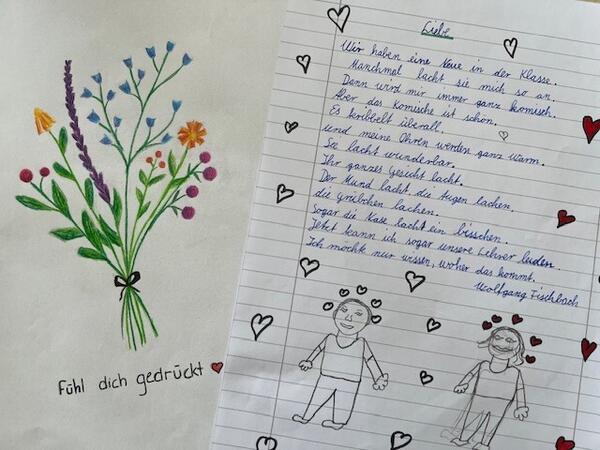 Fühl dich gedrückt
Liebe
Wir haben eine Neue in der Klasse.
Manchmal lacht sie mich so an.
Dann wird mir immer ganz komisch.
Aber das Komische ist schön.
Es kribbelt überall.
und meine Ohren werden ganz warm.
Sie lacht wunderbar.
Ihr ganzes Gesicht lacht.
Der Mund lacht, die Augen lachen.
die Grübchen lachen.
Sogar die Nase lacht ein bisschen.
Jetzt kann ich sogar unsere Lehrer leiden.
Ich möchte nur wissen, woher das kommt.
Wolfgang Fischbach